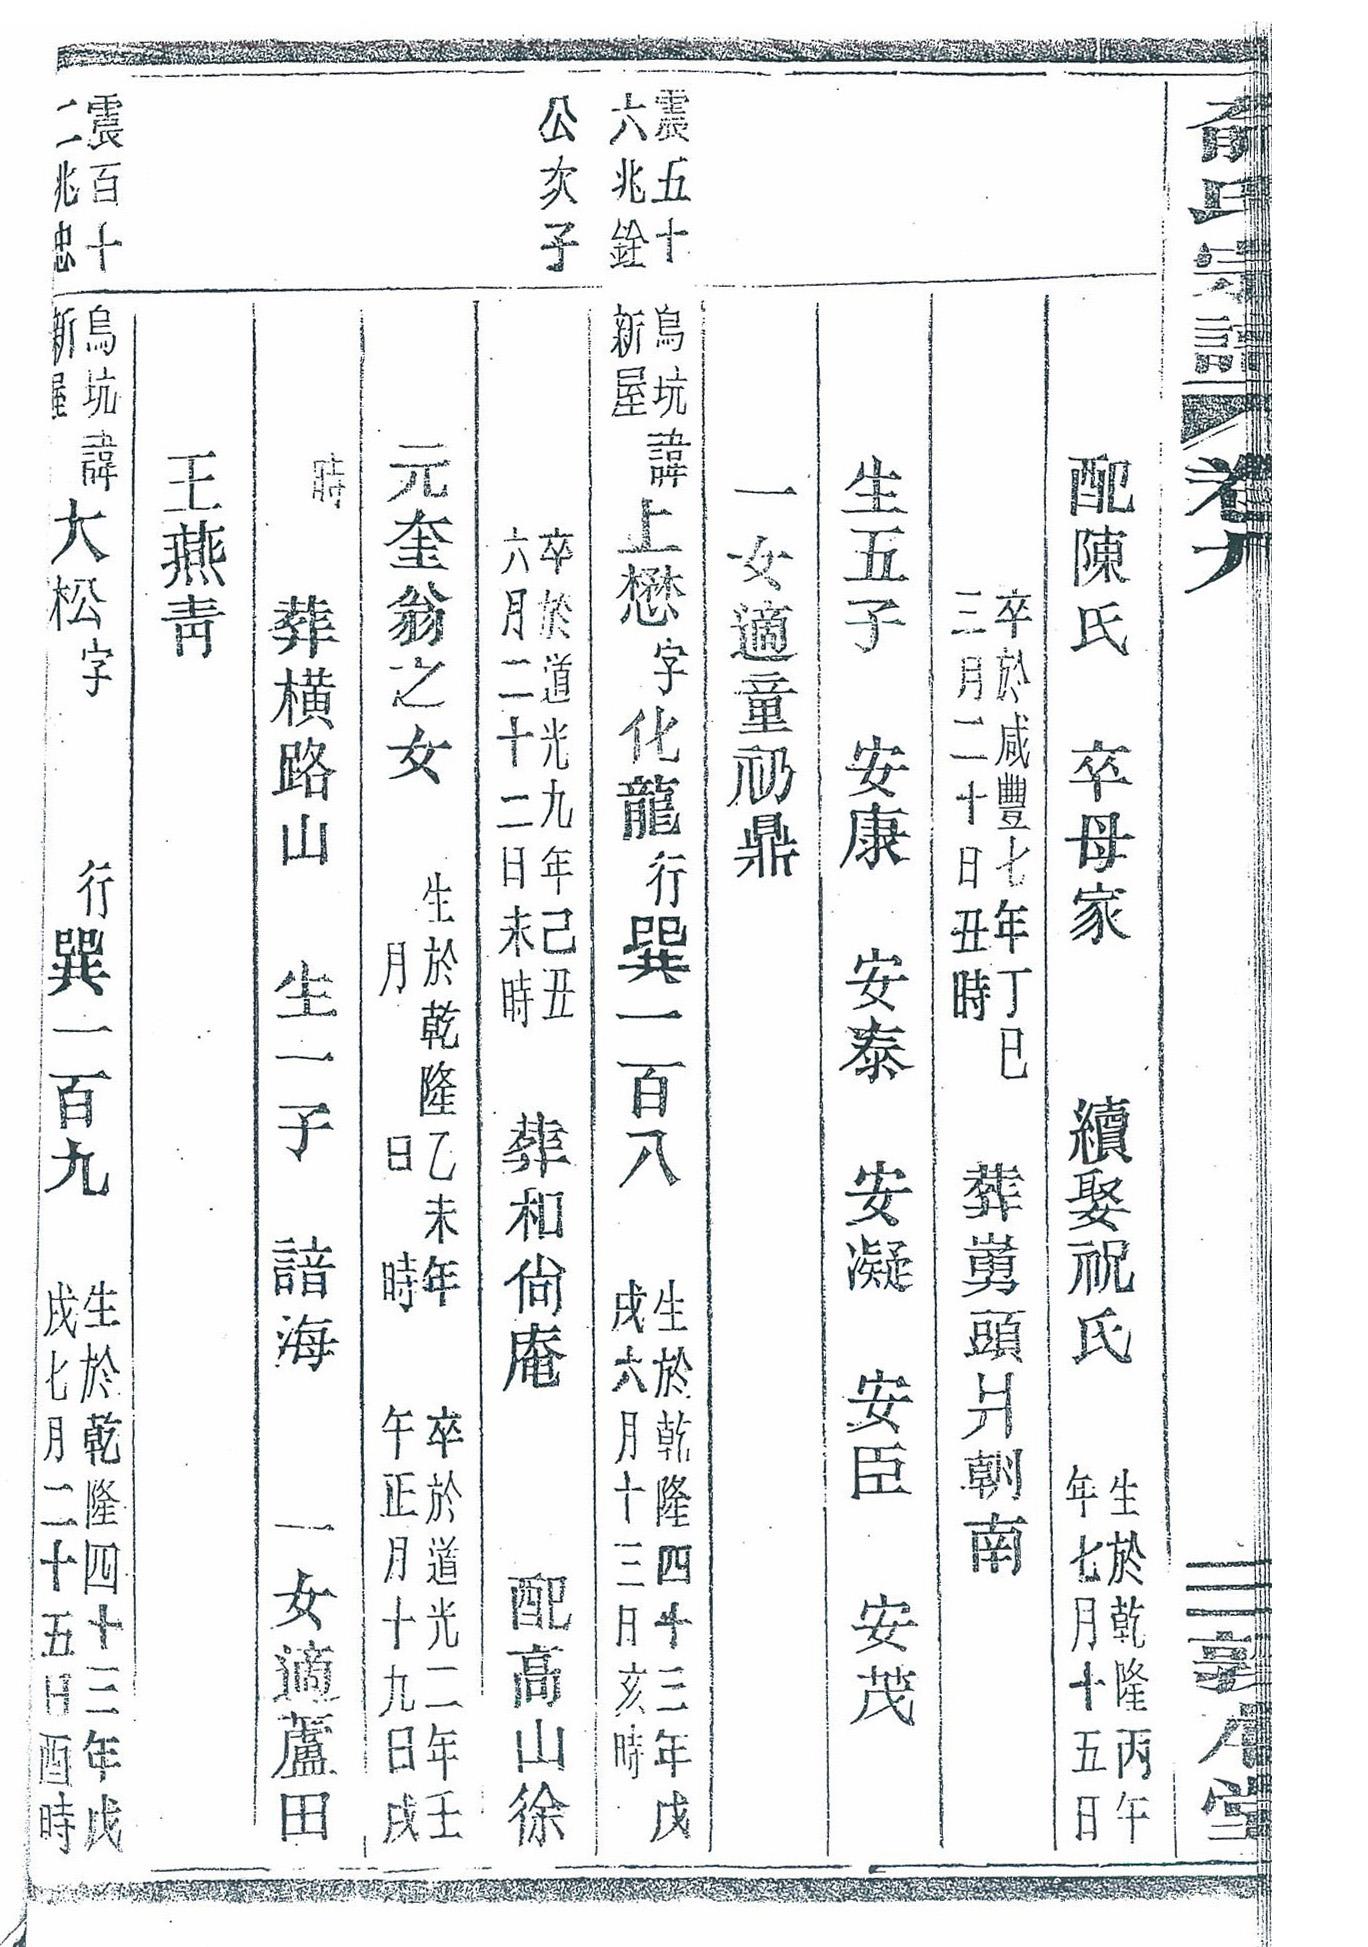 俞氏宗譜 卷六 三 敦 堂
配陳氏 卒母家 續娶祝氏 生於乾隆丙午年七月十五日
卒於咸豐七年丁巳三月二十日丑時 葬 頭爿朝南
生五子 安康 安泰 安凝 安臣 安茂
一女適童礽鼎
震五十六兆銓 鳥坑新屋 諱上懋字化龍行巽一百八 生於乾隆四十三年戊戌六月十三日亥時
公次子 卒於道光九年己丑六月二十二日未時 葬和尙庵 配高山徐
元奎翁之女 生於乾隆乙未年 月 日 時 卒於道光二年壬午正月十九日戌
時 葬橫路山 生一子 諳海 一女適蘆田
王燕靑
震百十二兆忠 鳥坑新屋 諱大松字 行巽一百九 生於乾隆四十三年戊戌七月二十五日酉時